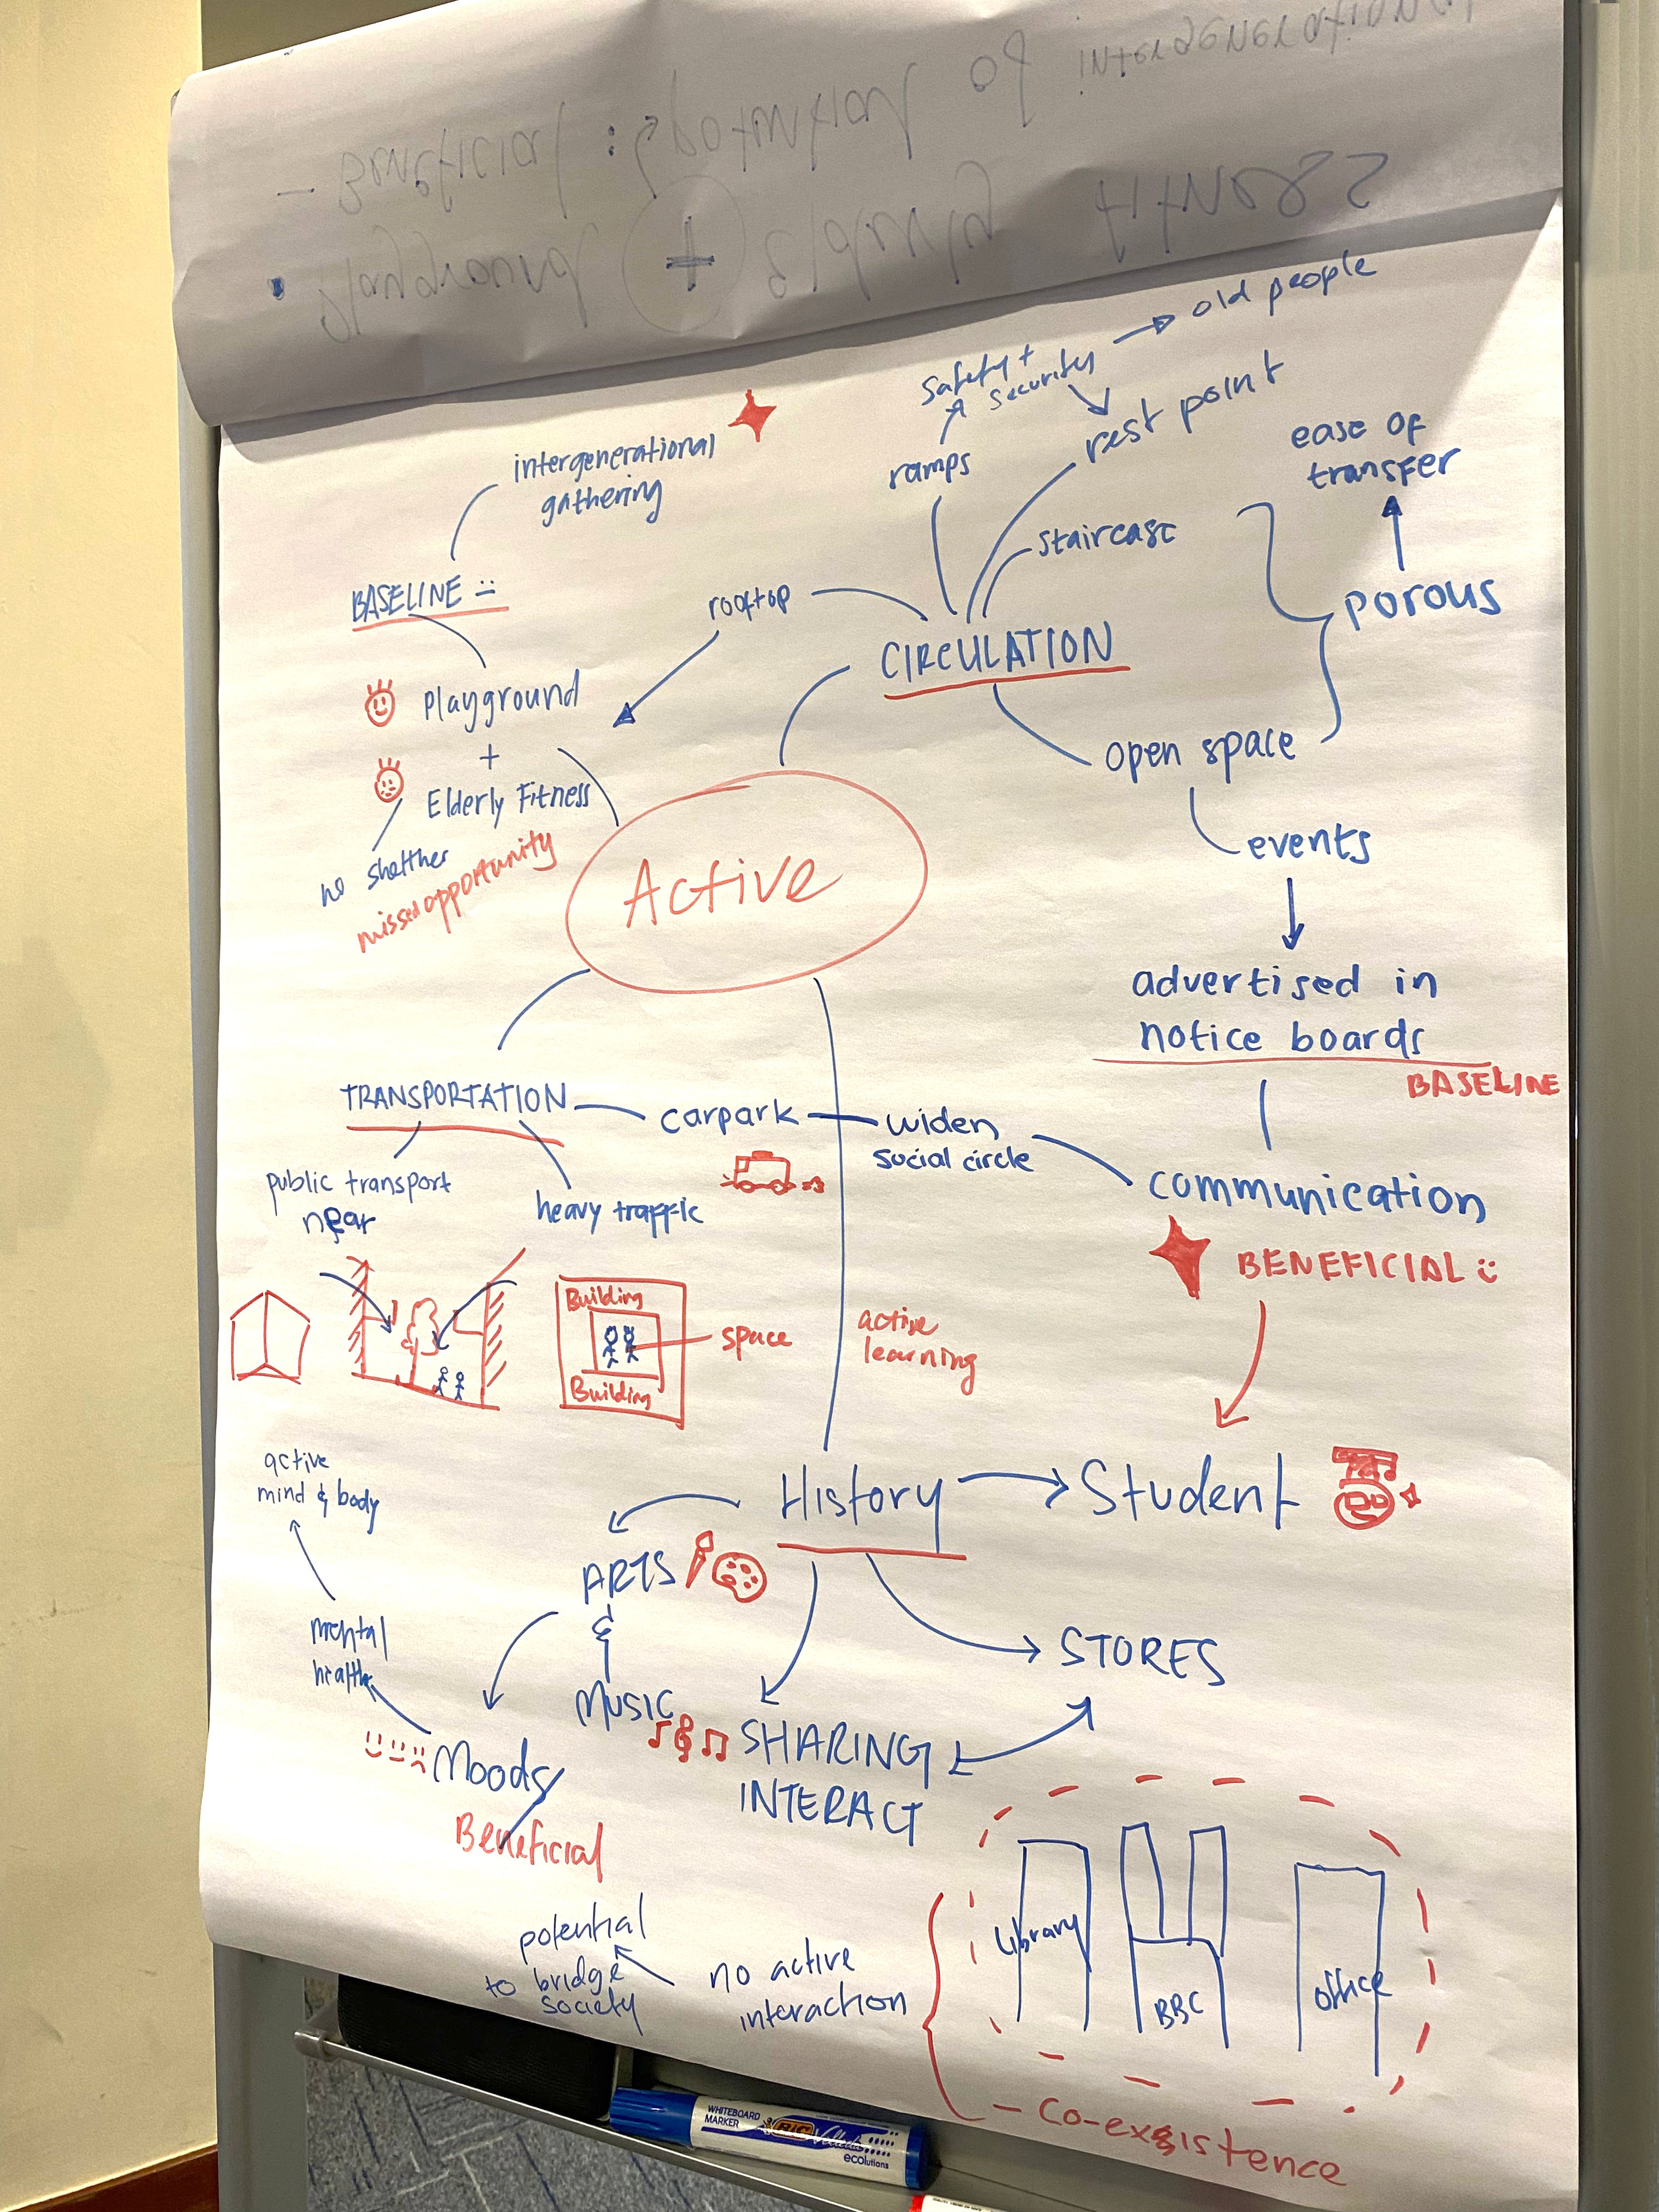 old people
Safety +
security
rest point
ramps
ease of
transfer
intergenerational
gathering
staircase
BASELINE
rooftop
porous
CIRCULATION
Playground
+
Elderly Fitness
open space
no shelther
missed opportunity
events
Active
advertised in
notice boards
BASELINE
TRANSPORTATION
carpark
widen
social circle
public transport
near
heavy traffic
communication
BENEFICIAL
Building
space
Building
active
learning
active
mind & body
History
Student
ARTS
&
MUSIC
mental
health
STORES
SHARING
INTERACT
Moods
Beneficial
potential
to bridge
society
no active
interaction
Library
BBC
office
- Co-existence
WHITEBOARD
MARKER
BIC
Velleda
ecolutions